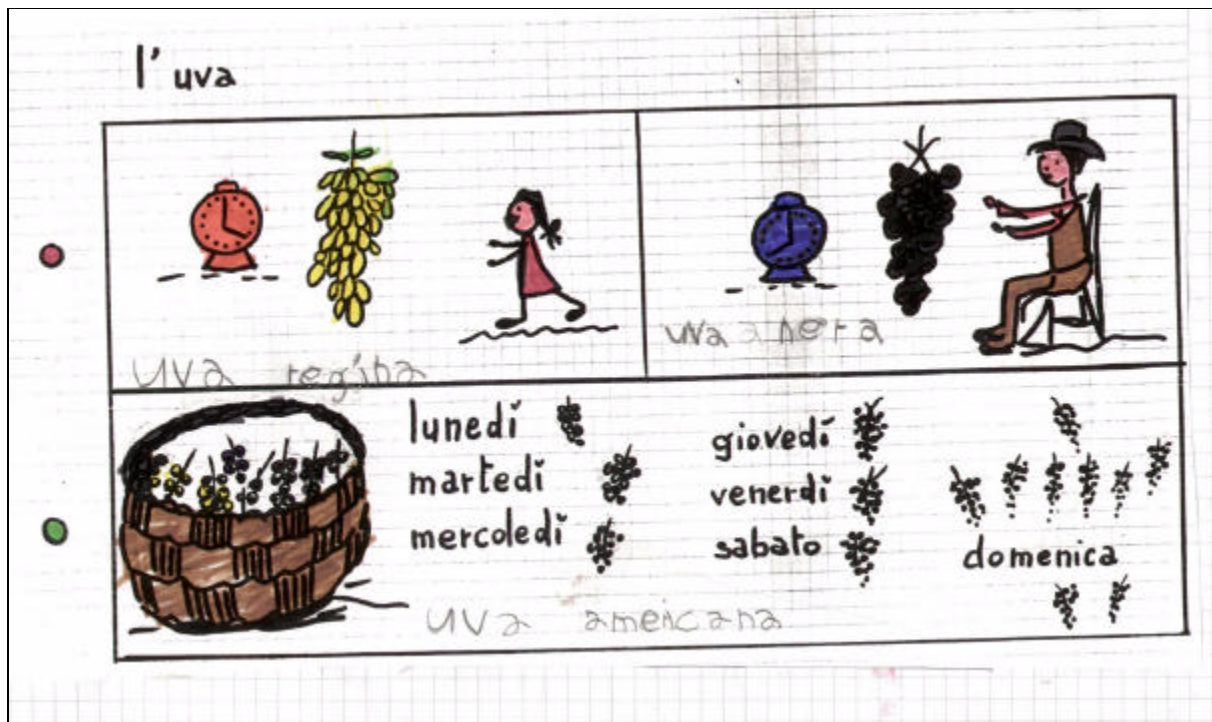 l'uva
uva regina
uva nera
lunedí
martedí
mercoledí
giovedí
venerdí
sabato
domenica
uva ameicana